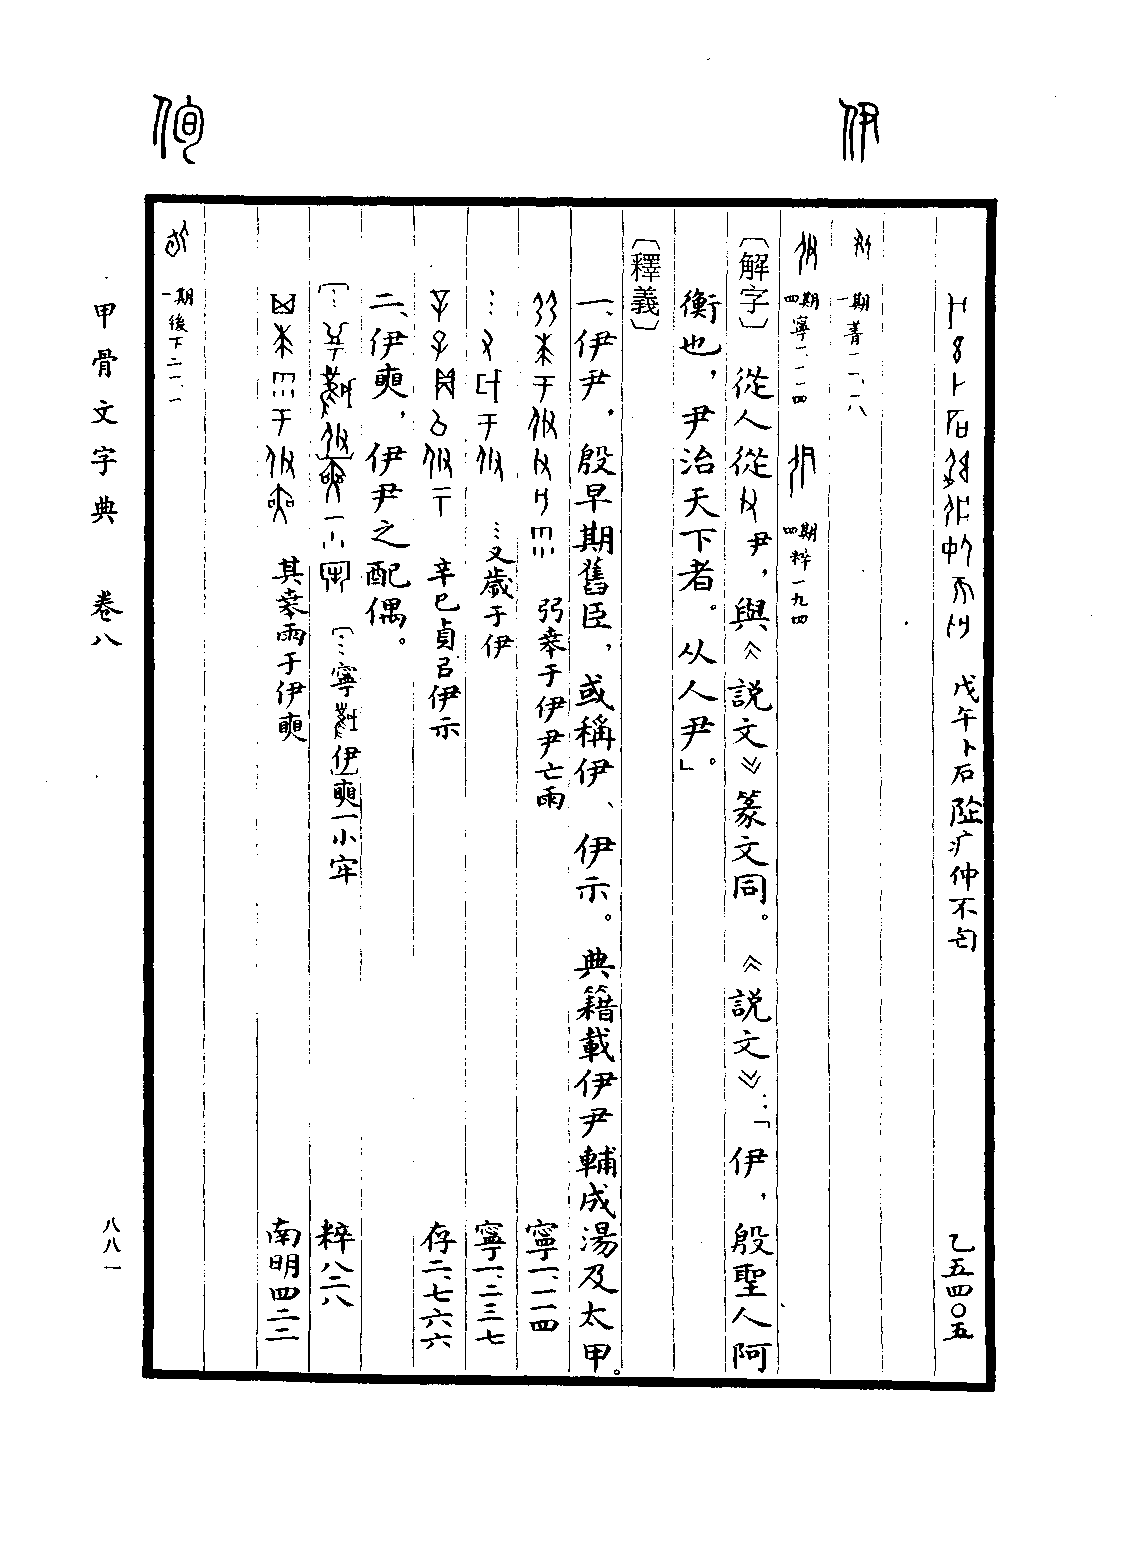 伊
戊午卜石陞疒仲不匄 乙五四〇五
一期菁一一、一八
四期寧一、一一四 四期粹一九四
〔解字〕從人從尹，與《說文》篆文同。《說文》：「伊，殷聖人阿
衡也，尹治天下者。从人尹。」
〔釋義〕
一、伊尹，殷早期舊臣，或稱伊、伊示。典籍載伊尹輔成湯及太甲。
弜𠦪于伊尹亡雨 寧一、一一四
…又歲于伊 寧一、二三七
辛巳貞㠯伊示 存二、七六六
二、伊奭，伊尹之配偶。
〔…寧伊〕奭一小宰 粹八二八
其𠦪雨于伊奭 南明四二二
一期後下二一、一
甲骨文字典 卷八 八八一